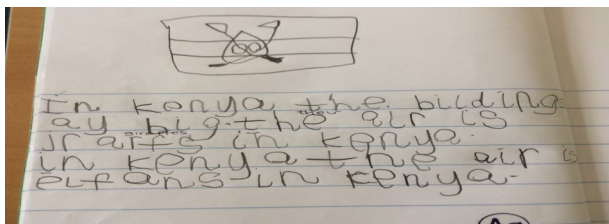 In kenya the bilding
ay big. the air is
jrarfs in kenya.
in kenya the air is
elfans in kenya.